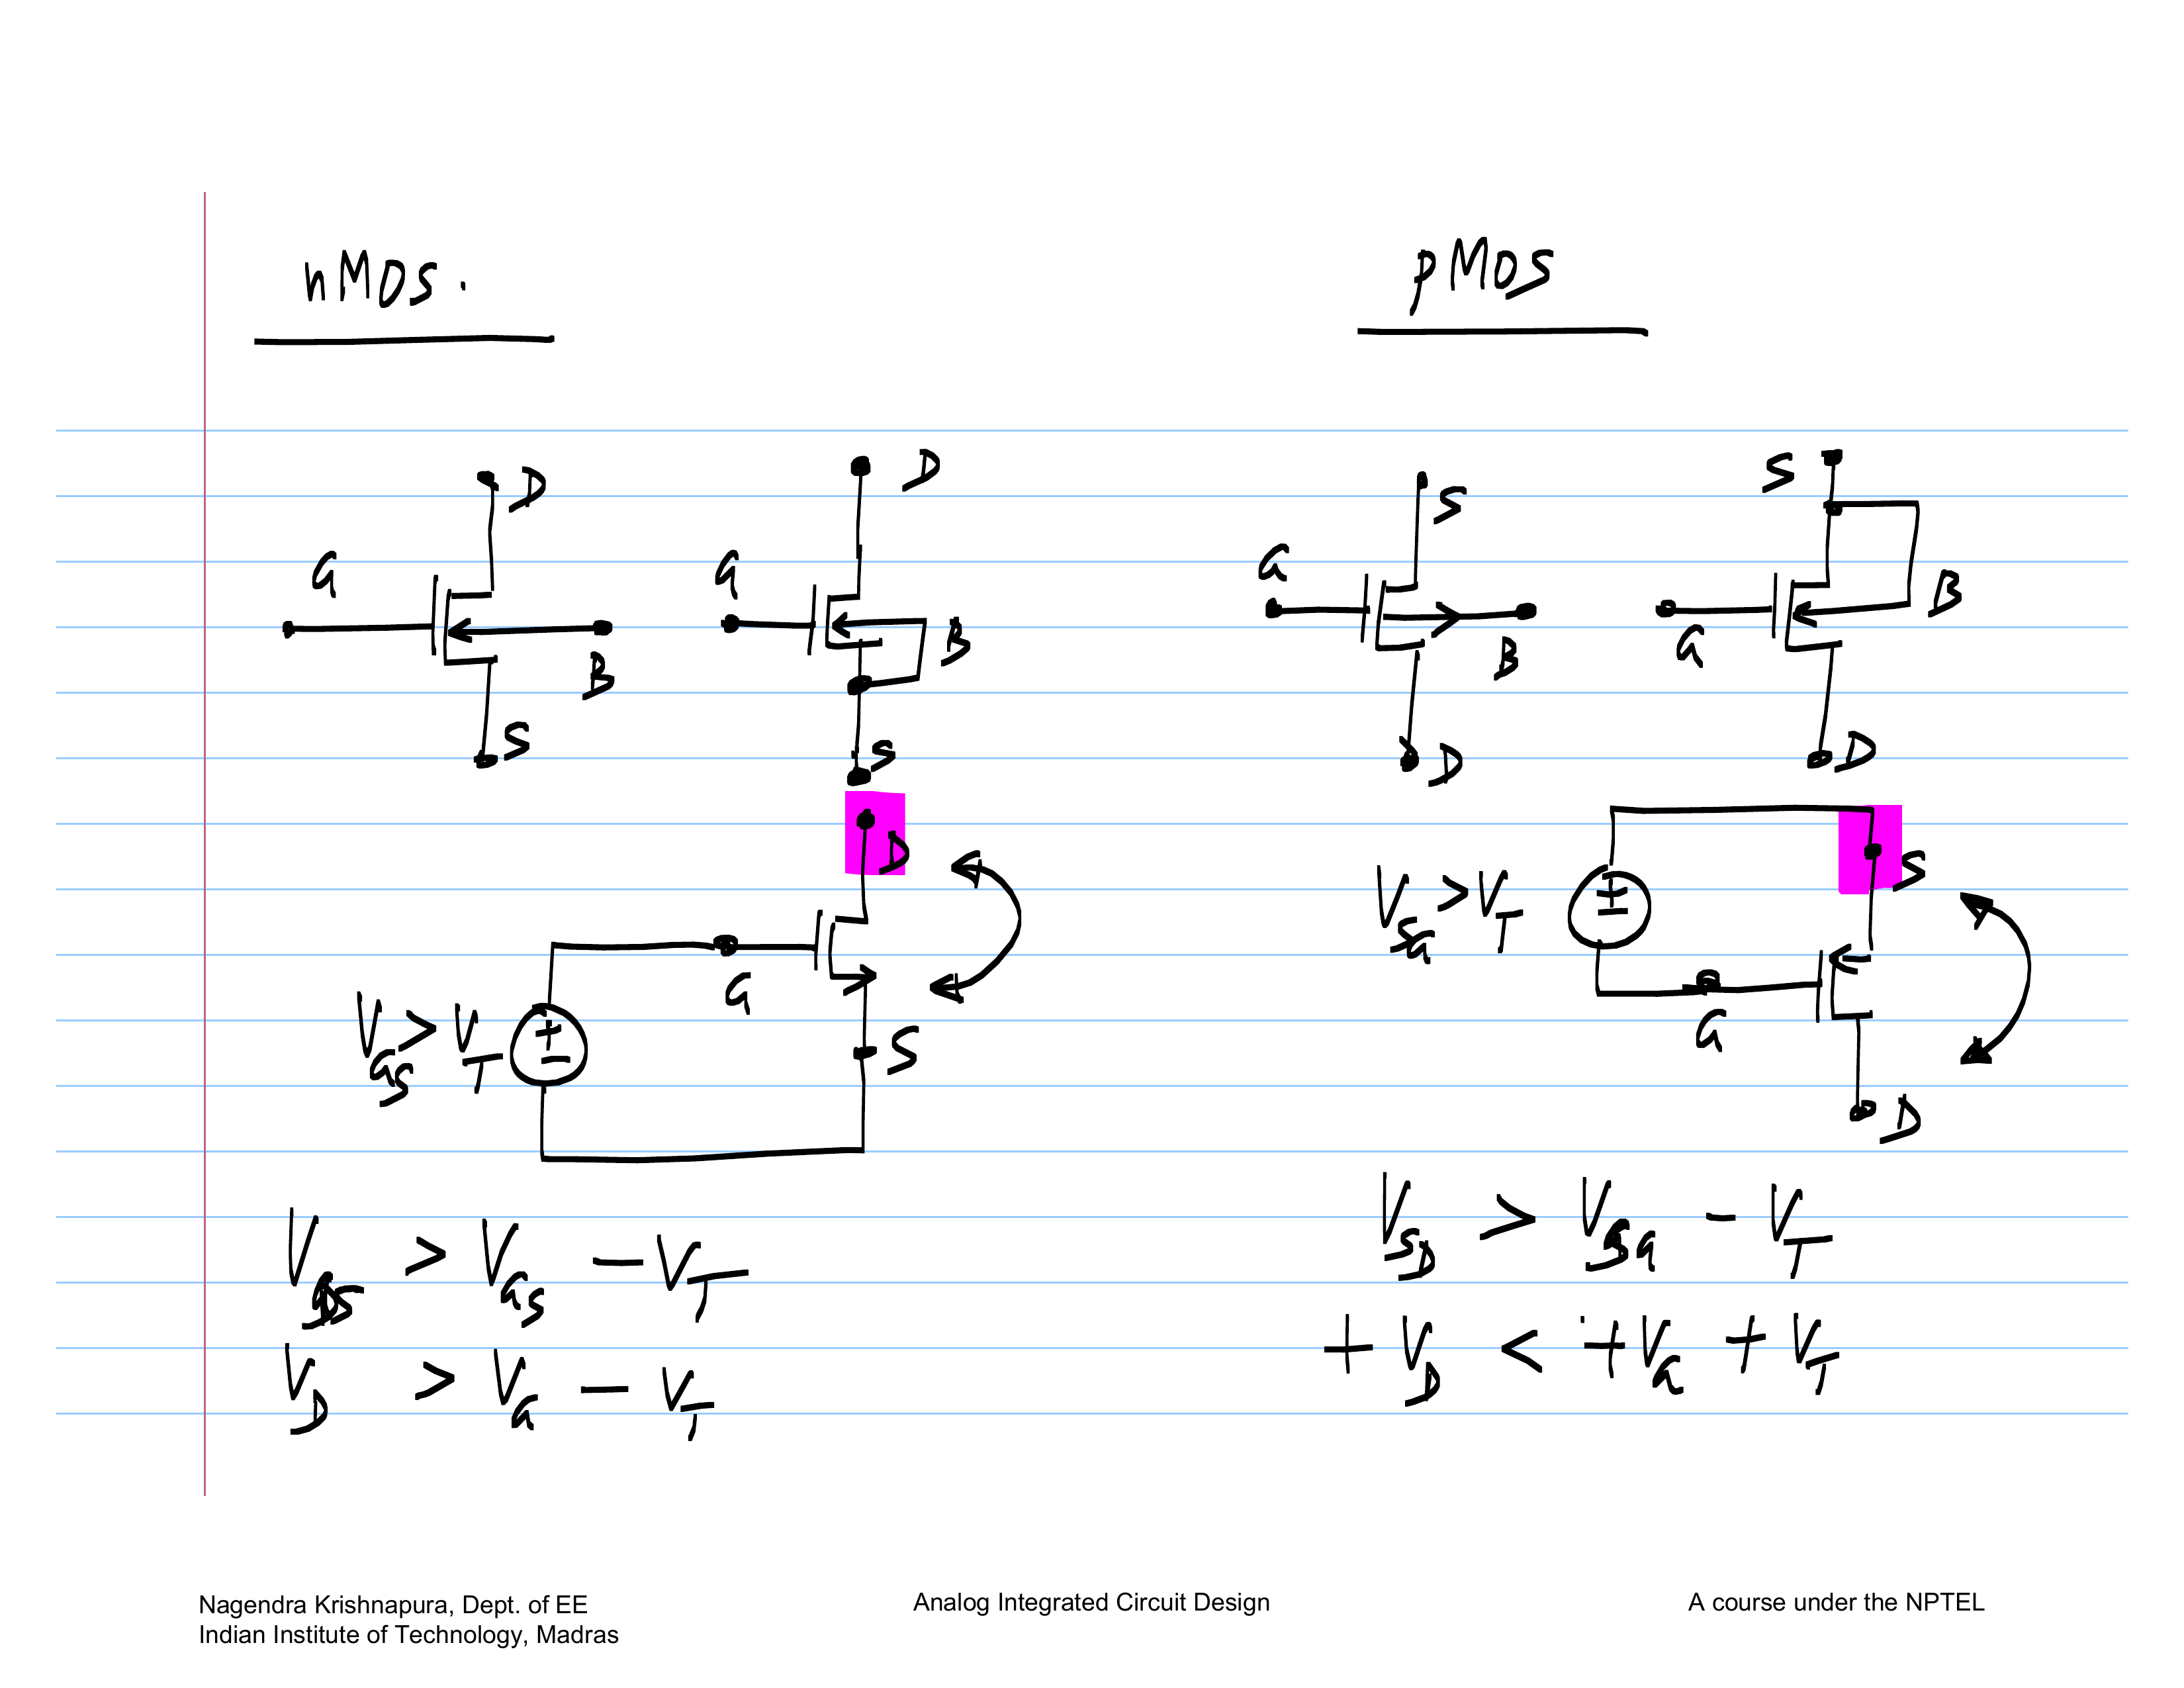 nMOS.
pMOS
D
D
S
S
G
G
G
B
B
B
G
B
S
S
D
D
D
S
V_SG > V_T
G
G
V_GS > V_T
S
D
V_DS > V_GS - V_T
V_SD > V_SG - V_T
V_D > V_G - V_T
+ V_D < + V_G + V_T
Nagendra Krishnapura, Dept. of EE
Indian Institute of Technology, Madras
Analog Integrated Circuit Design
A course under the NPTEL